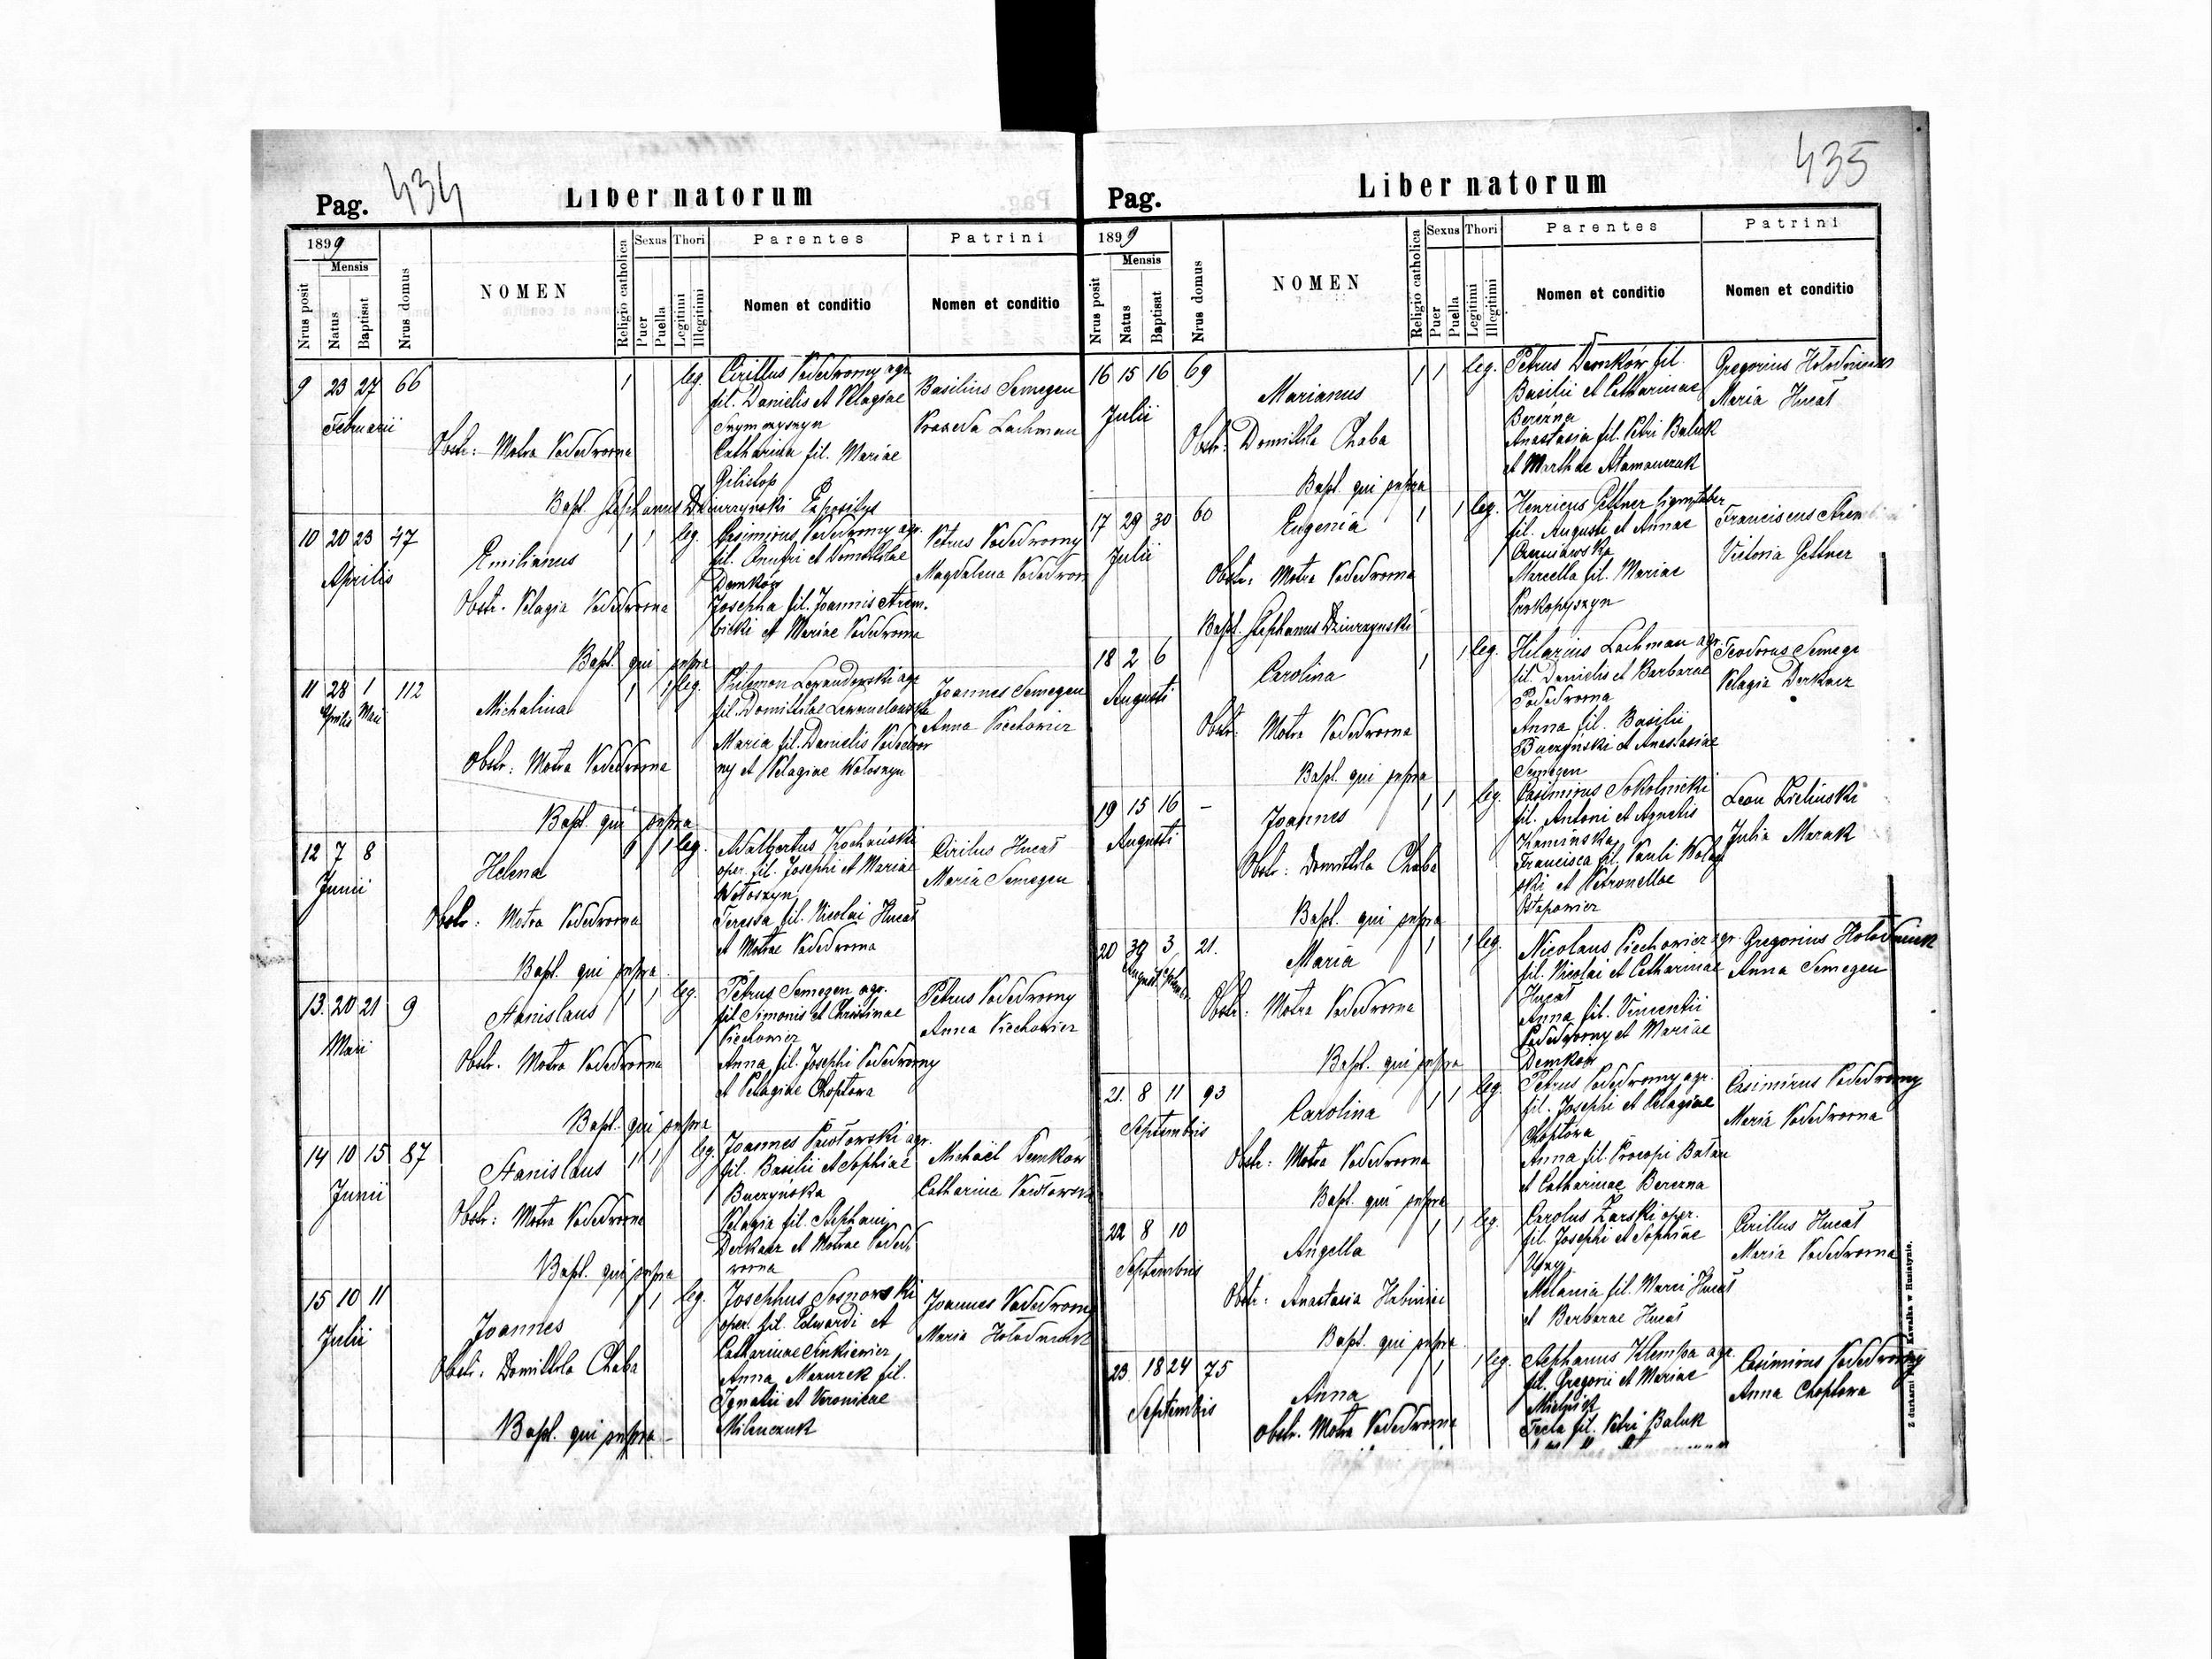 Pag. 434 Liber natorum
1899
Mensis
Nrus posit
Natus
Baptisat
Nrus domus
NOMEN
Religio catholica
Sexus
Puer
Puella
Thori
Legitimi
Illegitimi
Parentes
Nomen et conditio
Patrini
Nomen et conditio
9 23 27 66
Februarii
1 leg.
Cirillus Podedworny agr.
fil. Danielis et Pelagiae
Szymczyszyn
Catharina fil. Mariae
Basilius Semegen
Praxeda Lachman
Obstr: Motra Podedworna
Bapt. Stephanus Dziurzyński Expositus
10 20 23 47
Aprilis
Emilianus
1 1 leg.
Casimirus Podedworny agr.
fil. Onufri et Domitillae
Demków
Josepha fil. Joannis Arem-
bicki et Mariae Podedworna
Petrus Podedworny
Magdalena Podedwor
Obstr. Pelagia Podedworna
Bapt. qui supra
11 28 1 112
Aprilis Maii
Michalina
1 1 leg.
Philemon Lewandowski agr
fil. Domitillae Lewandowska
Maria fil. Danielis Podedwor
ny et Pelagiae Wołoszyn
Joannes Semegen
Anna Piechowicz
Obstr: Motra Podedworna
Bapt. qui supra
12 7 8
Junii
Helena
1 1 leg.
Adalbertus Kochański
oper. fil. Josephi et Mariae
Wołoszyn
Teressa fil. Nicolai Hucał
et Motrae Podedworna
Cirilus Hucał
Maria Semegen
Obstr: Motra Podedworna
Bapt. qui supra
13. 20 21 9
Maii
Stanislaus
1 1 leg.
Petrus Semegen agr.
fil Simonis et Christinae
Piechowicz
Anna fil. Josephi Podedworny
et Pelagiae Choptowa
Petrus Podedworny
Anna Piechowicz
Obstr. Motra Podedworna
Bapt. qui supra
14 10 15 87
Junii
Stanislaus
1 1 leg.
Joannes Pawłowski agr.
fil. Basilii et Sophiae
Buczyńska
Pelagia fil. Stephani
Derkacz et Motrae Poded
worna
Michaël Demków
Catharina Pawłowska
Obstr: Motra Podedworna
Bapt. qui supra
15 10 11
Julii
Joannes
1 1 leg.
Josephus Sosnowski
oper. fil. Edwardi et
Catharinae Sinkiewicz
Anna Mazurek fil.
Ignatii et Veronicae
Milanczuk
Joannes Podedworny
Maria Hołodniuk
Obstr: Domithla Chaba
Bapt. qui supra
Pag. Liber natorum 435
1899
Mensis
Nrus posit
Natus
Baptisat
Nrus domus
NOMEN
Religio catholica
Sexus
Puer
Puella
Thori
Legitimi
Illegitimi
Parentes
Nomen et conditio
Patrini
Nomen et conditio
16 15 16 69
Julii
Marianus
1 1 leg.
Petrus Demków fil.
Basilii et Catharinae
Berezna
Anastasia fil. Petri Baluk
et Marthae Atamanczuk
Gregorius Hołodniuk
Maria Hucał
Obstr: Domithla Chaba
Bapt. qui supra
17 29 30 60
Julii
Eugenia
1 1 leg.
Henricus Gettner lignifaber
fil. Augusti et Annae
Czerniawska
Marcella fil. Mariae
Prokopyszyn
Franciscus Arem
Victoria Gettner
Obstr: Motra Podedworna
Bapt. Stephanus Dziurzyński
18 2 6
Augusti
Carolina
1 1 leg.
Hilarius Lachman agr.
fil. Danielis et Barbarae
Podedworna
Anna fil. Basilii
Buczyński et Anastasiae
Semegen
Teodorus Semege
Pelagia Derkacz
Obstr: Motra Podedworna
Bapt. qui supra
19 15 16 –
Augusti
Joannes
1 1 leg.
Casimirus Sokolnicki
fil. Antoni et Agnetis
Kamińska
Francisca fil. Pauli Wolań
ski et Petronellae
Ostapowicz
Leon Zieliński
Julia Marak
Obstr: Domithla Chaba
Bapt. qui supra
20 3 21.
Maria
1 1 leg.
Nicolaus Piechowicz agr.
fil. Nicolai et Catharinae
Hucał
Anna fil. Vincentii
Podedworny et Mariae
Demków
Gregorius Hołodniuk
Anna Semegen
Obstr: Motra Podedworna
Bapt. qui supra
21. 8 11 93
Septembris
Carolina
1 1 leg.
Petrus Podedworny agr.
fil. Josephi et Pelagiae
Choptowa
Anna fil. Procopi Bałan
et Catharinae Berezna
Casimirus Podedworny
Maria Podedworna
Obstr: Motra Podedworna
Bapt. qui supra
22 8 10
Septembris
Angella
1 1 leg.
Carolus Żarski oper.
fil. Josephi et Sophiae
Melania fil. Marci Hucał
et Barbarae Hucał
Cirillus Hucał
Maria Podedworna
Obstr: Anastasia
Bapt. qui supra
23. 18 24 75
Septembris
Anna
1 1 leg.
Stephanus Klempa agr.
fil. Gregorii et Mariae
Mielnik
Tecla fil. Petri Baluk
Casimirus Podedworny
Anna Choptowa
Obstr. Motra Podedworna